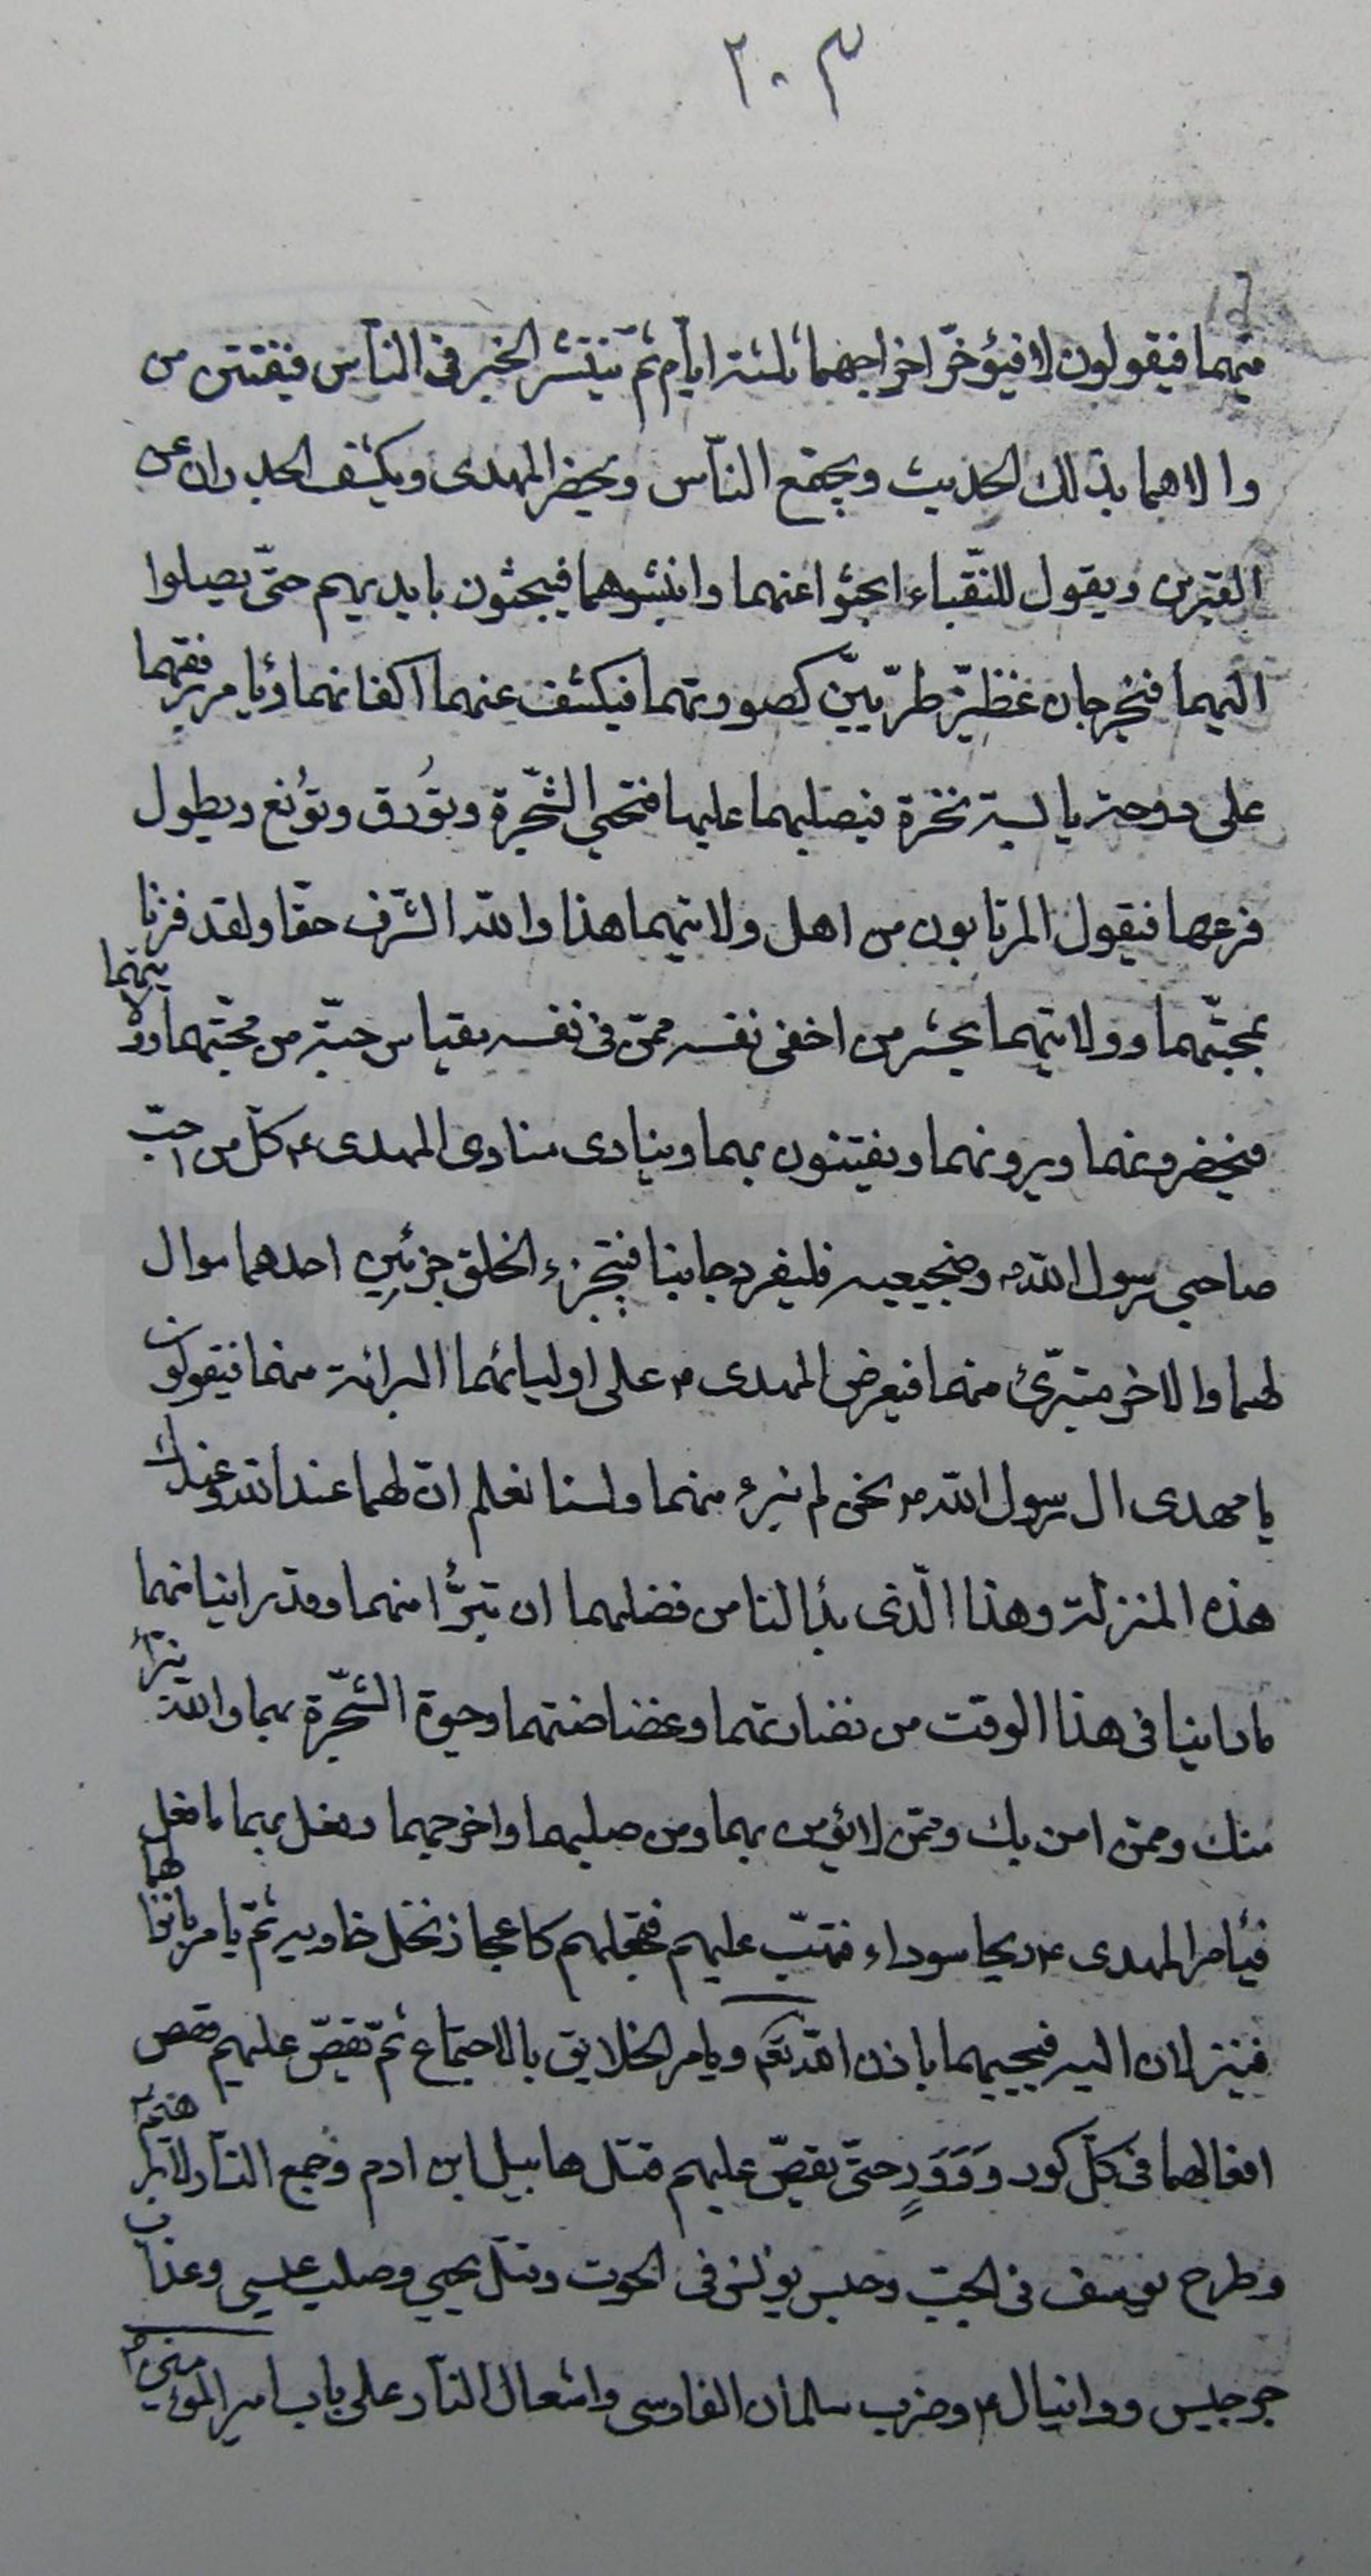 ٢٠٣
فيهما فيقولون لا فيؤخّر اخراجهما ثلثة ايّام ثمّ ينتشر الخبر فى النّاس فيفتتن من
والاهما بذلك الحديث ويجتمع النّاس ويحضر المهدى ويكشف الجدران عن
القبرين ويقول للنّقباء ابحثوا عنهما وانبشوهما فيبحثون بايديهم حتّى يصلوا
اليهما فيخرجان غضّين طريّين كصورتهما فيكشف عنهما اكفانهما ويامر برفعهما
على دوحة يابسة نخرة فيصلبهما عليها فتحيى الشّجرة وتُورق وتونع ويطول
فرعها فيقول المرتابون من اهل ولايتهما هذا والله الشّرف حقّا ولقد فزنا
بمحبّتهما وولايتهما يحشر من اخفى نفسه ممّن فى نفسه مقياس حبّة من محبّتهما وولايتهما
فيحضرونهما ويرونهما ويفتنون بهما وينادى منادى المهدى ع كلّ من احبّ
صاحبى رسول الله ص وضجيعيه فلينفرد جانبا فيتجزء الخلق جزئين احدهما موال
لهما والاخر متبرّئ منهما فيعرض المهدى ع على اوليائهما البرائة منهما فيقولون
يا مهدى ال رسول الله ص نحن لم نبرء منهما ولسنا نعلم انّ لهما عند الله وعندك
هذه المنزلة وهذا الّذى بدا لنا من فضلهما ان نتبرّأ منهما وقد راينا منهما
ما راينا فى هذا الوقت من نضارتهما وغضاضتهما وحيوة الشّجرة بهما والله نبرأ
منك وممّن امن بك وممّن لا يؤمن بهما ومن صلبهما واخرجهما وفعل بهما ما فعل
فيأمر المهدى ع ريحا سوداء فتهبّ عليهم فتجعلهم كاعجاز نخل خاوية ثمّ يامر بانزالهما
فينزلان اليه فيحييهما باذن الله تعالى ويامر الخلايق بالاجتماع ثمّ يقصّ عليهم قصص
افعالهما فى كلّ كور ودَوَرٍ حتّى يقصّ عليهم قتل هابيل ابن ادم وجمع النّار لابراهيم ع
وطرح يوسف فى الجبّ وحبس يونس فى الحوت وقتل يحيى وصلب عيسى وعذاب
جرجيس ودانيال ع وضرب سلمان الفارسى واشعال النّار على باب امير المؤمنين ع